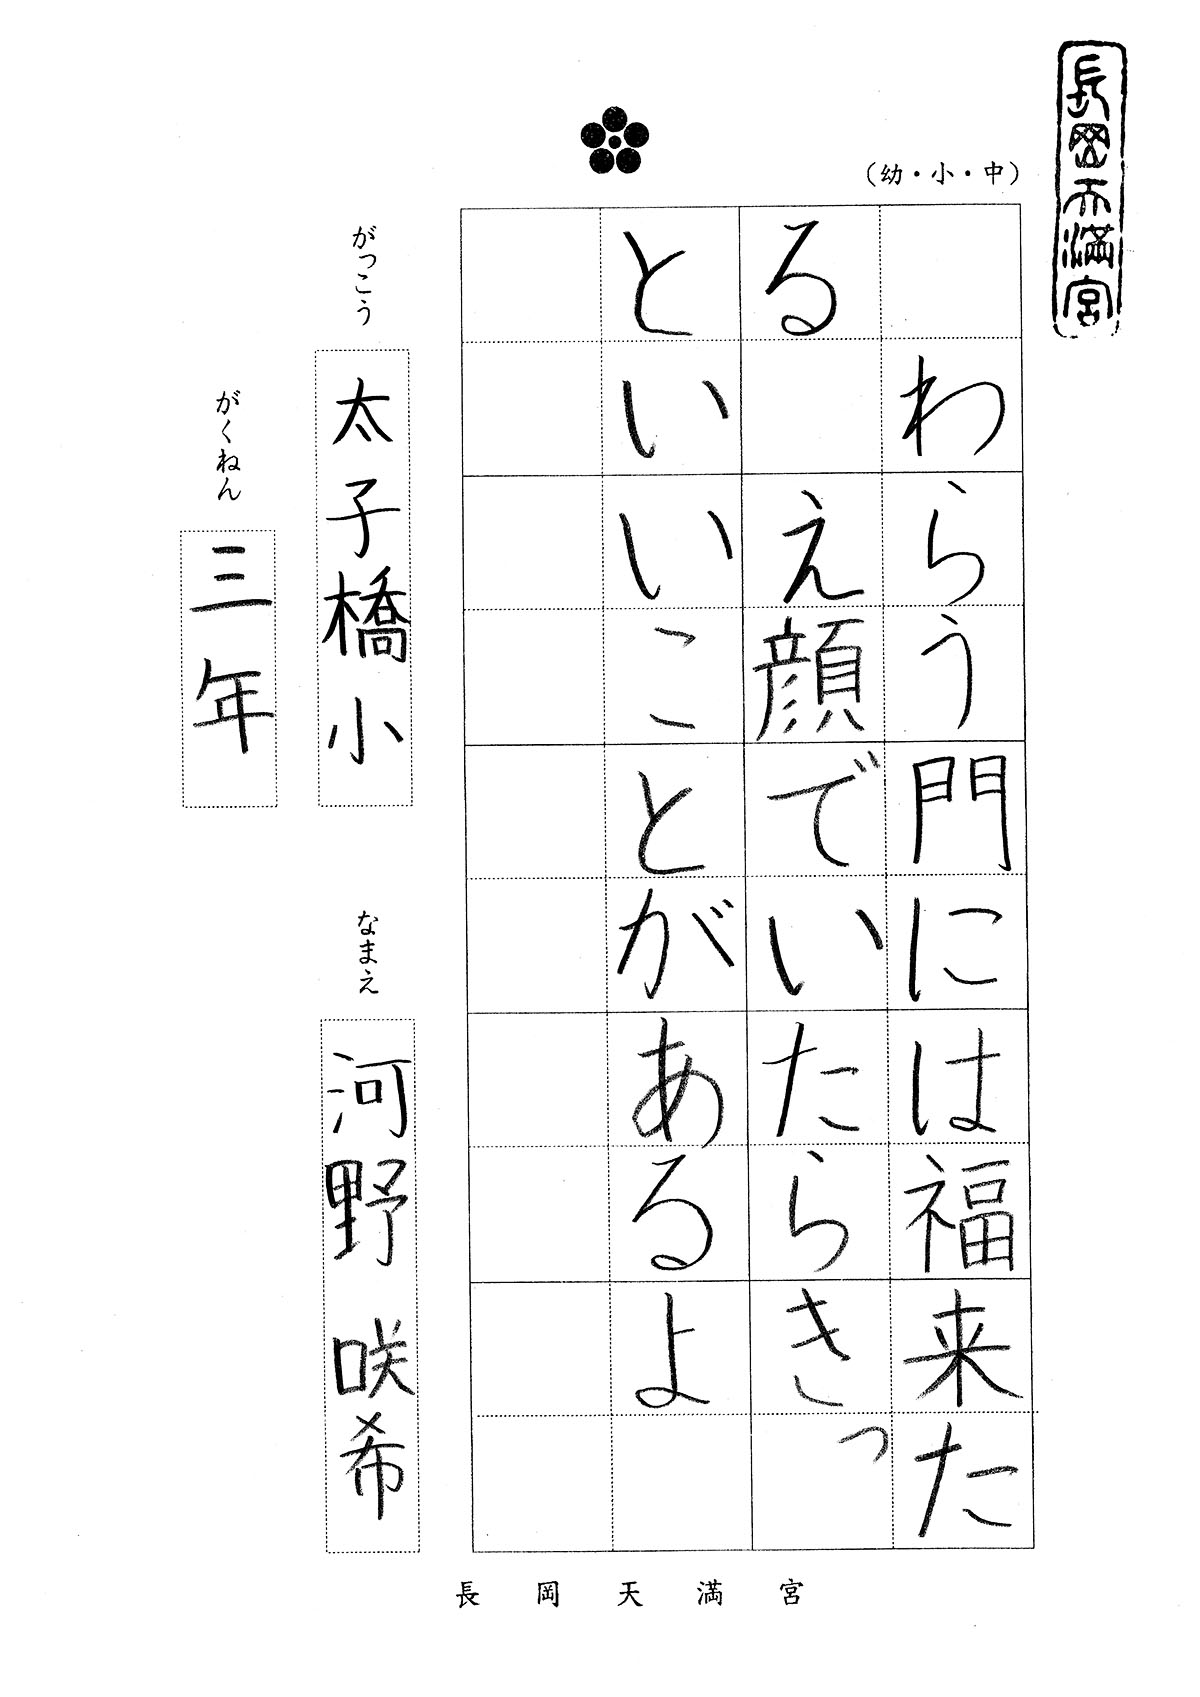 長岡天満宮
(幼・小・中)
わらう門には福来た
る　え顔でいたらきっ
といいことがあるよ
がっこう
太子橋小
がくねん
三年
なまえ
河野 咲希
長岡天満宮